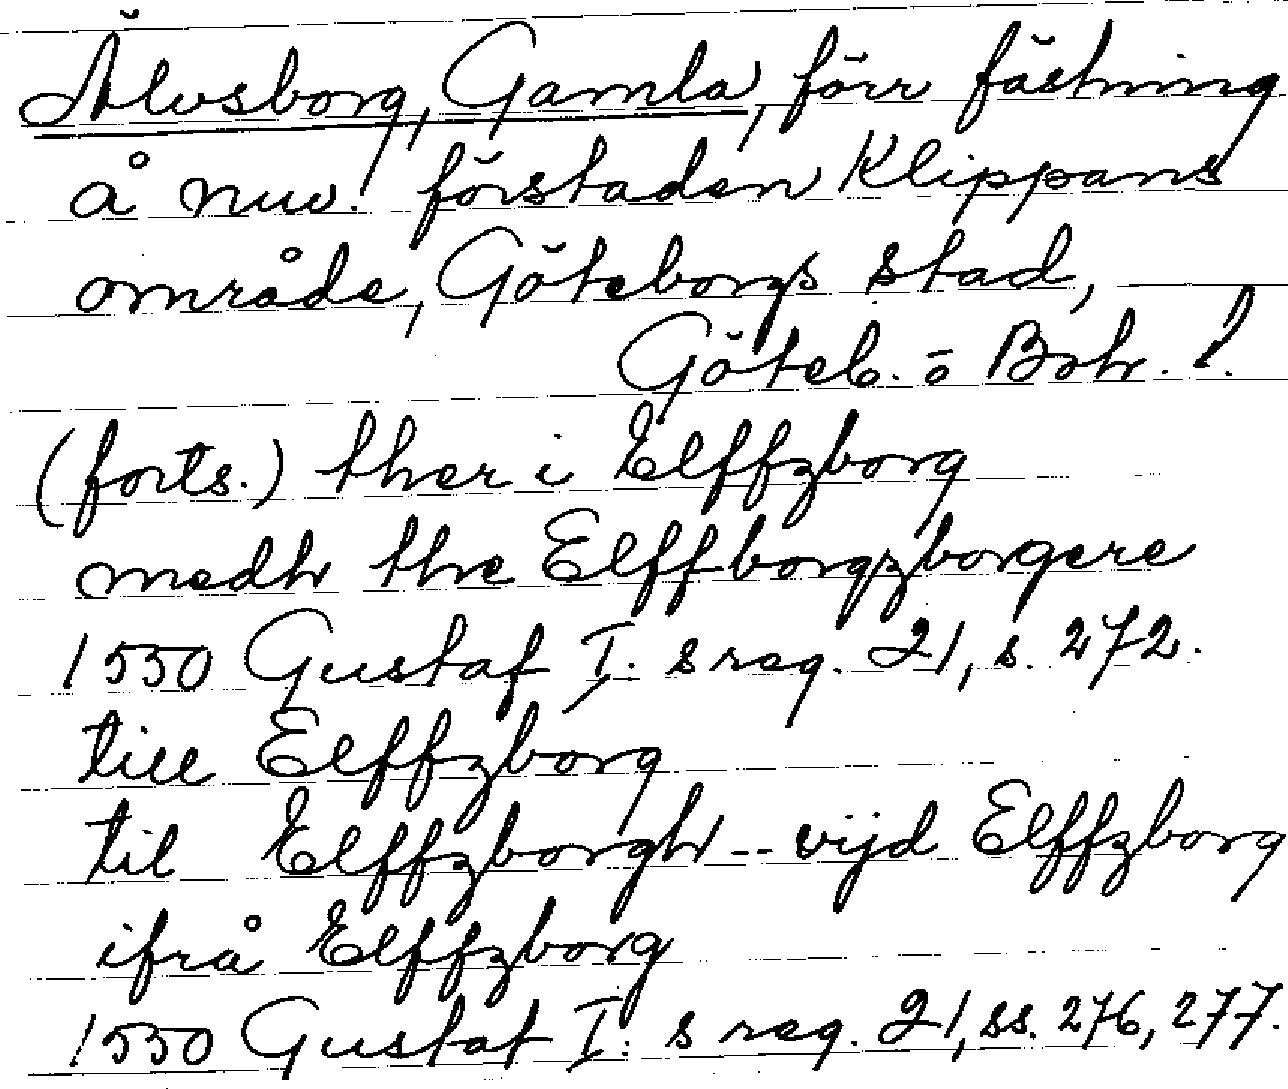 Älvsborg, Gamla, förr fästning
å nuv. förstaden Klippans
område, Göteborgs stad,
Göteb. o Boh. l.
(forts.) ther i Elffzborg
medh the Elffborgzborgere
1550 Gustaf I. s reg. 21, s. 272.
till Elffzborg
til Elffzborgh -- vijd Elffzborg
ifrå Elffzborg
1550 Gustaf I. s reg. 21, ss. 276, 277.